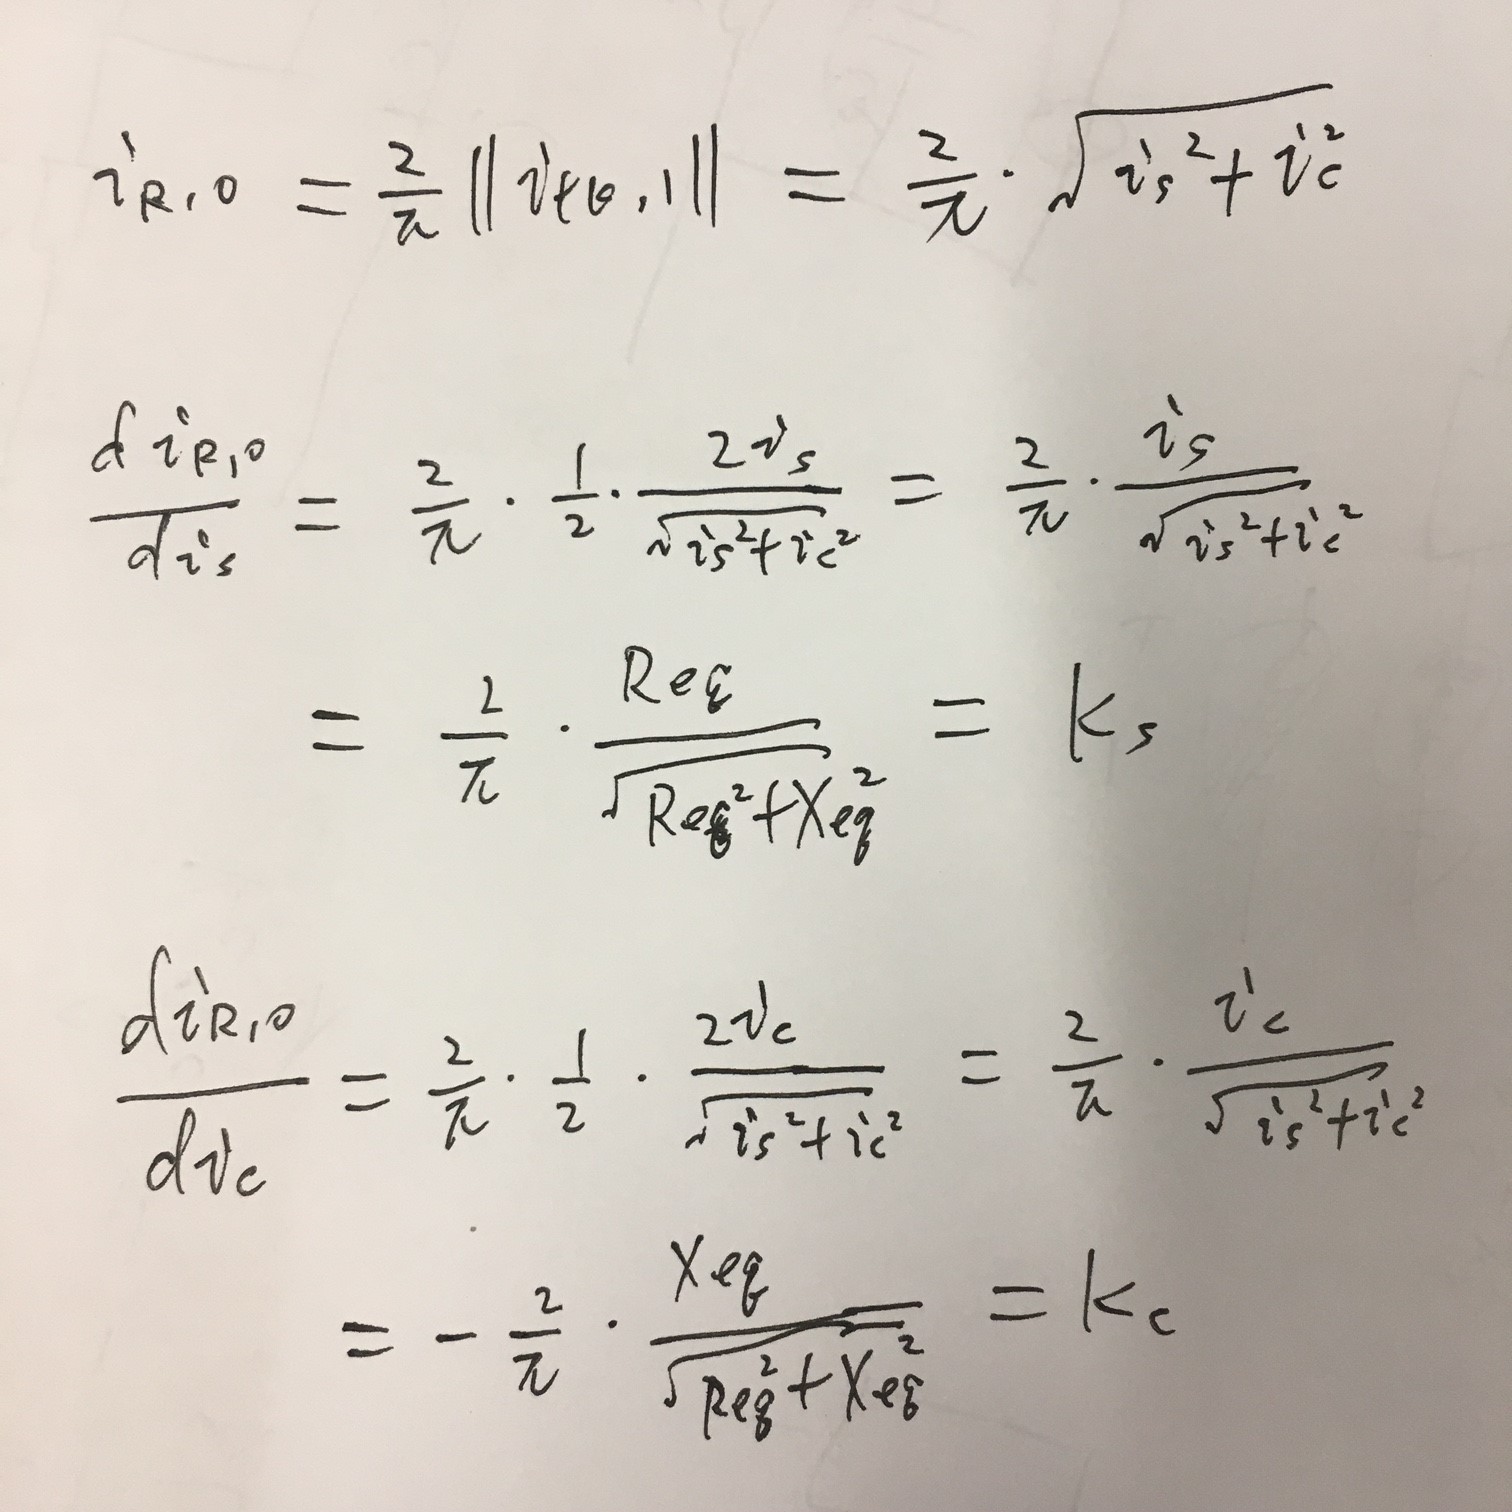 i_{R,0} = \frac{2}{π} || i_{,1} || = \frac{2}{π} · \sqrt{i_s^2 + i_c^2}
\frac{d i_{R,0}}{d i_s} = \frac{2}{π} · \frac{1}{2} · \frac{2 i_s}{\sqrt{i_s^2 + i_c^2}} = \frac{2}{π} · \frac{i_s}{\sqrt{i_s^2 + i_c^2}}
= \frac{2}{π} · \frac{Req}{\sqrt{Req^2 + Xeq^2}} = K_s
\frac{d i_{R,0}}{d i_c} = \frac{2}{π} · \frac{1}{2} · \frac{2 i_c}{\sqrt{i_s^2 + i_c^2}} = \frac{2}{π} · \frac{i_c}{\sqrt{i_s^2 + i_c^2}}
= - \frac{2}{π} · \frac{Xeq}{\sqrt{Req^2 + Xeq^2}} = K_c